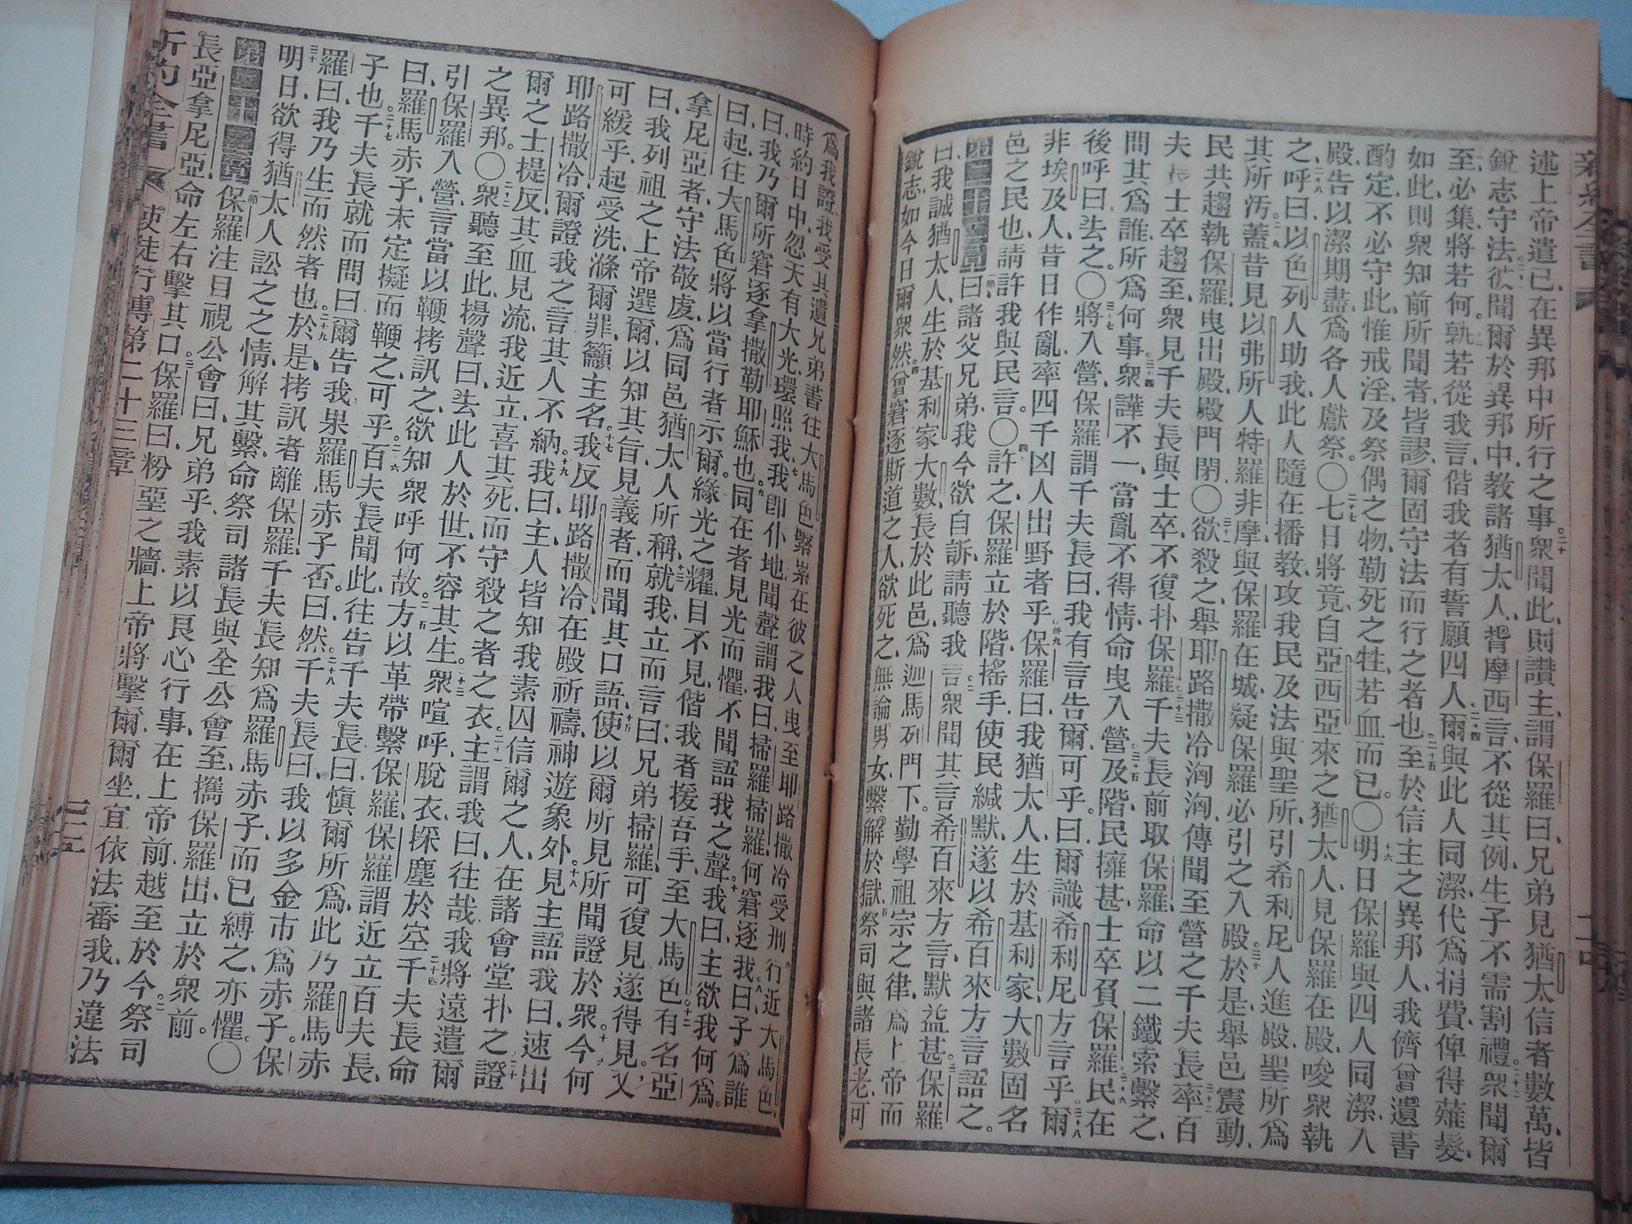 新約全書
述上帝遣已在異邦中所行之事衆聞此則讚主謂保羅曰兄弟見猶太信者數萬皆
銳志守法彼聞爾於異邦中教諸猶太人背摩西言不從其例生子不需割禮衆聞爾
至必集將若何孰若從我言偕我者有誓願四人爾與此人同潔代爲捐費俾得薙髮
如此則衆知前所聞者皆謬爾固守法而行之者也至於信主之異邦人我儕曾遺書
酌定不必守此惟戒淫及祭偶之物勒死之牲若血而已〇明日保羅與四人同潔入
殿告以潔期盡爲各人獻祭〇七日將竟自亞西亞來之猶太人見保羅在殿唆衆執
之呼曰以色列人助我此人隨在播教攻我民及法與聖所引希利尼人進殿聖所爲
其所汚蓋昔見以弗所人特羅非摩與保羅在城疑保羅必引之入殿於是舉邑震動
民共趨執保羅曳出殿殿門閉〇欲殺之舉耶路撒冷洶洶傳聞至營之千夫長率百
夫長士卒趨至衆見千夫長與士卒不復扑保羅千夫長前取保羅命以二鐵索繫之
問其爲誰所爲何事衆譁不一當亂不得情命曳入營及階民擁甚士卒負保羅民在
後呼曰去之〇將入營保羅謂千夫長曰我有言告爾可乎曰爾識希利尼方言乎爾
非埃及人昔日作亂率四千凶人出野者乎保羅曰我猶太人生於基利家大數固名
邑之民也請許我與民言〇許之保羅立於階搖手使民緘默遂以希百來方言語之
第二十二章曰諸父兄弟我今欲自訴請聽我言衆聞其言希百來方言默益甚保羅
曰我誠猶太人生於基利家大數長於此邑爲迦馬列門下勤學祖宗之律爲上帝而
銳志如今日爾衆然曾窘逐斯道之人欲死之無論男女繫解於獄祭司與諸長老可
爲我證我受其遺兄弟書往大馬色繫累在彼之人曳至耶路撒冷受刑行近大馬色
時約日中忽天有大光環照我我卽仆地聞聲謂我曰掃羅掃羅何窘逐我曰子爲誰
曰我乃爾所窘逐拿撒勒耶穌也同在者見光而懼不聞語我之聲我曰主欲我何爲
曰起往大馬色將以當行者示爾緣光之耀目不見偕我者援吾手至大馬色有名亞
拿尼亞者守法敬虔爲同邑猶太人所稱就我立而言曰兄弟掃羅可復見遂得見又
曰我列祖之上帝選爾以知其旨見義者而聞其口語使以爾所見所聞證於衆今何
可緩乎起受洗滌爾罪籲主名我反耶路撒冷在殿祈禱神遊象外見主語我曰速出
耶路撒冷爾證我之言其人不納我曰主人皆知我素囚信爾之人在諸會堂扑之證
爾之士提反其血見流我近立喜其死而守殺之者之衣主謂我曰往哉我將遠遣爾
之異邦〇衆聽至此揚聲曰去此人於世不容其生衆喧呼脫衣揉塵於空千夫長命
引保羅入營言當以鞭拷訊之欲知衆呼何故方以革帶繫保羅保羅謂近立百夫長
曰羅馬赤子未定擬而鞭之可乎百夫長聞此往告千夫長曰愼爾所爲此乃羅馬赤
子也千夫長就而問曰爾告我果羅馬赤子否曰然千夫長曰我以多金市爲赤子保
羅曰我乃生而然者也於是拷訊者離保羅千夫長知爲羅馬赤子而已縛之亦懼〇
明日欲得猶太人訟之之情解其繫命祭司諸長與全公會至攜保羅出立於衆前
第二十三章保羅注目視公會曰兄弟乎我素以良心行事在上帝前越至於今祭司
長亞拿尼亞命左右擊其口保羅曰粉堊之牆上帝將擊爾爾坐宜依法審我乃違法
新約全書 使徒行傳第二十三章